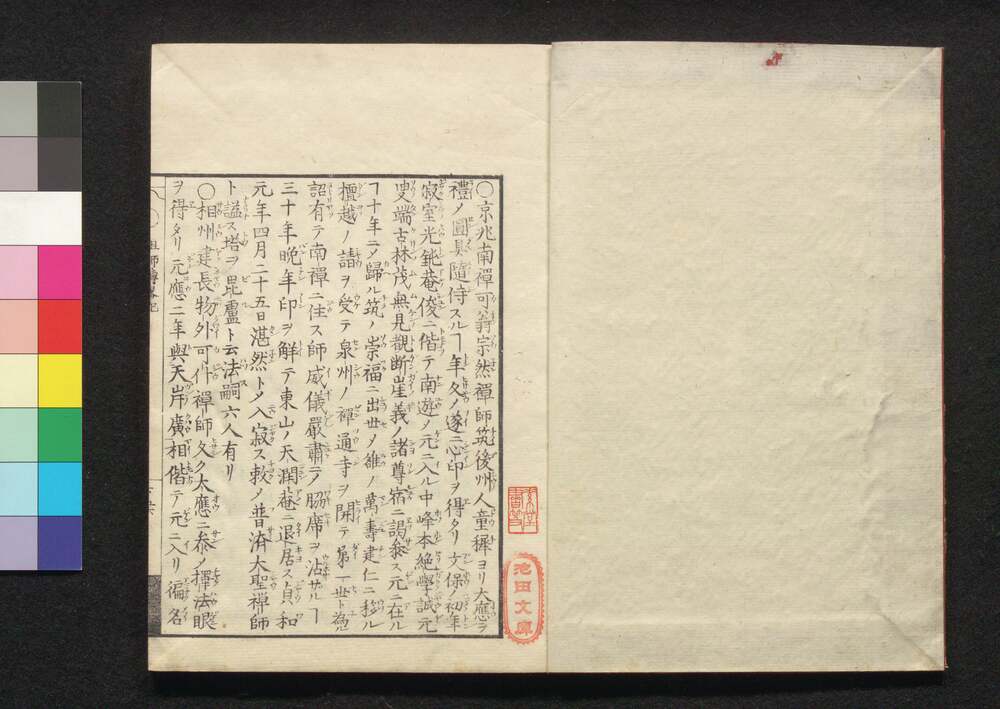 ○京兆南禪可翁宗然禪師筑後州人童穉ヨリ大應ヲ
禮ノ圓具隨侍スルヿ年久ノ遂ニ心印ヲ得タリ文保ノ初年
寂室光鈍菴俊ニ偕テ南遊ノ元ニ入ル中峰本絶學誠元
叟端古林茂無見覩断崖義ノ諸尊宿ニ謁參ス元ニ在ル
ヿ十年ニノ歸ル筑ノ崇福ニ出世ノ雒ノ萬壽建仁ニ移ル
檀越ノ請ヲ受テ泉州ノ禪通寺ヲ開テ第一世ト為
詔有テ南禪ニ住ス師威儀嚴肅テ脇席ヲ沾サルヿ
三十年晩年印ヲ解テ東山ノ天潤菴ニ退居ス貞和
元年四月二十五日湛然トノ入寂ス敕ノ普済大聖禅師
ト謚ス塔ヲ毘盧ト云法嗣六人有リ
○相州建長物外可什禪師久ク大應ニ参ノ擇法眼
ヲ得タリ元應二年與天岸廣相偕テ元ニ入リ徧名
池田文庫